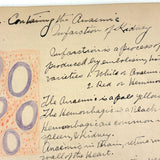 Containing the Anaemic
Infarction of Kidney
Infarction is a process of
produced by embolism in
varieties White or Anaemic
2 Red or Hem
The Anaemic is a pale yellow
The Hemorrhagic is a
Hemorrhagic is common in
spleen, & Kidney.
Anaemic in Brain,
wall of the Heart.